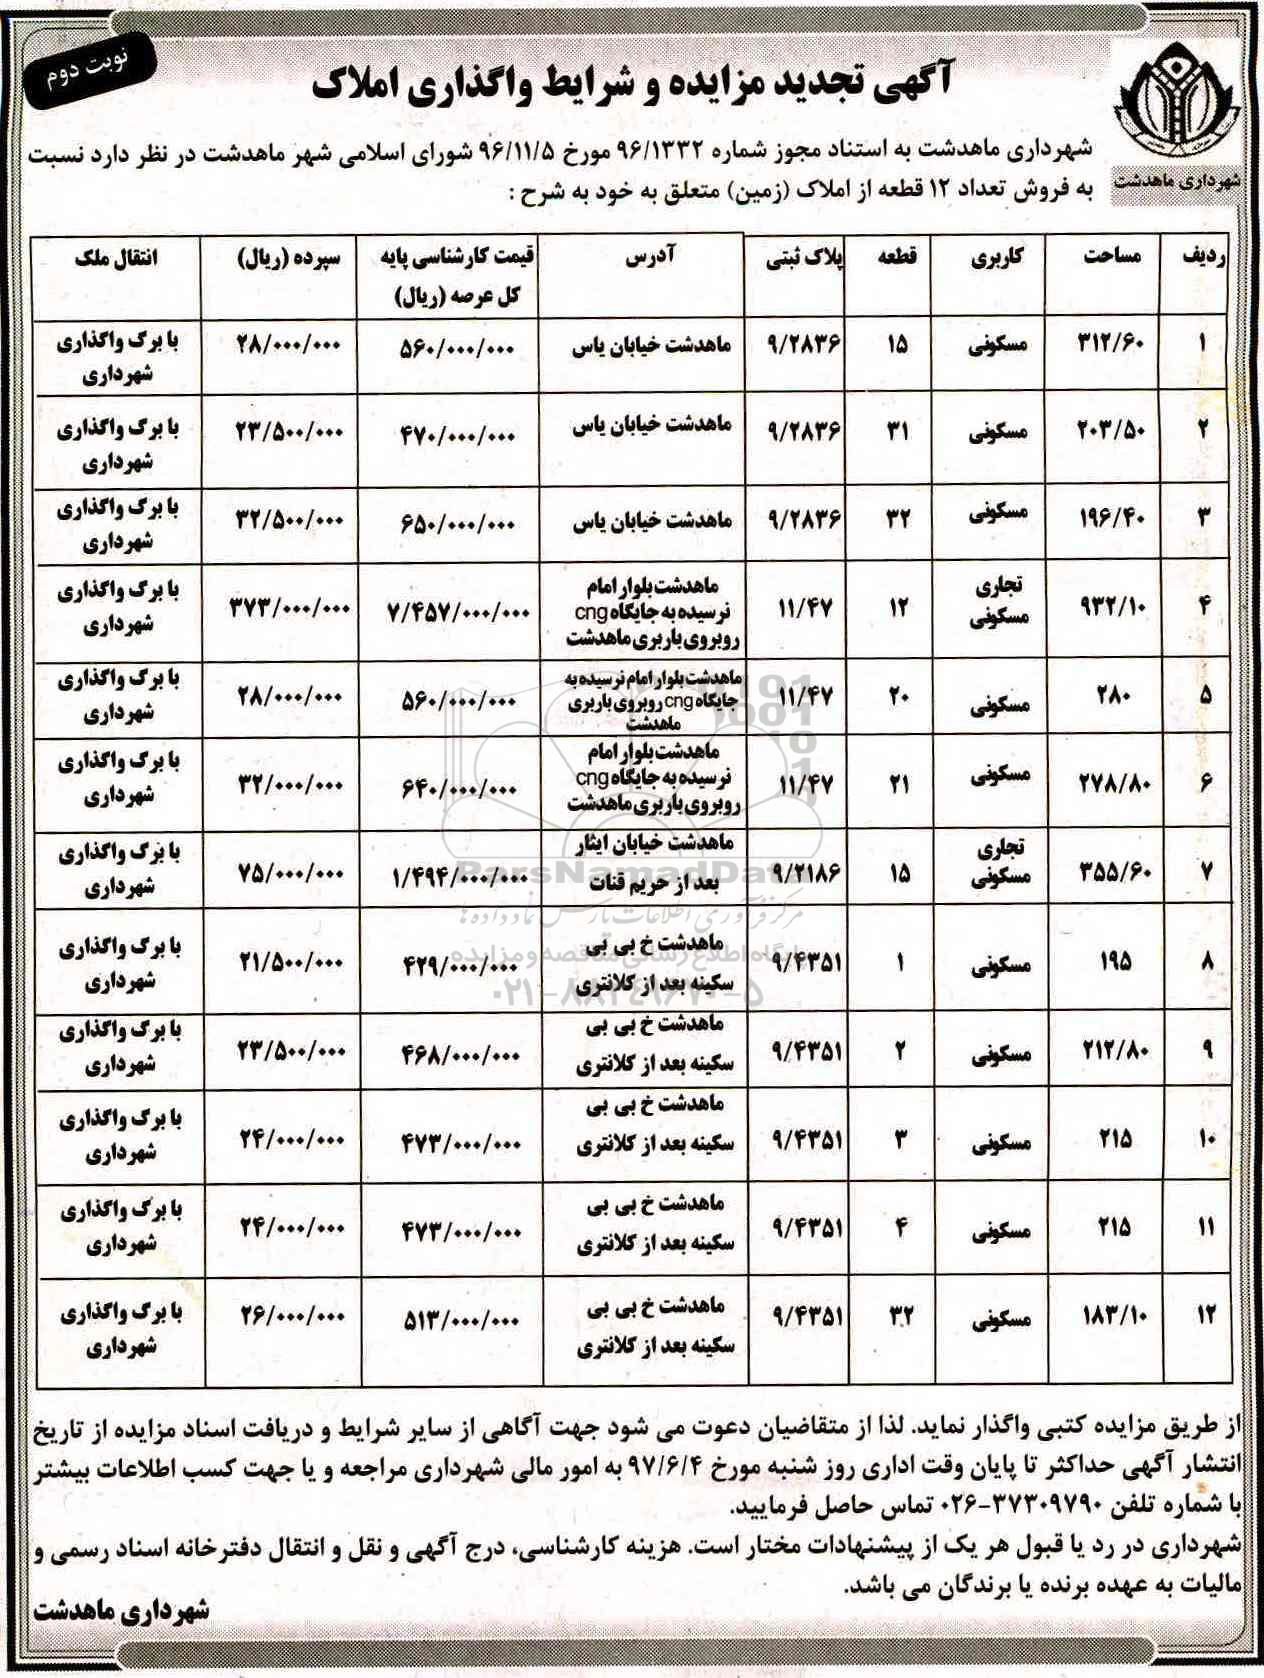 نوبت دوم
آگهی تجدید مزایده و شرایط واگذاری املاک
شهرداری ماهدشت
شهرداری ماهدشت به استناد مجوز شماره ۹۶/۱۳۳۲ مورخ ۹۶/۱۱/۵ شورای اسلامی شهر ماهدشت در نظر دارد نسبت
به فروش تعداد ۱۲ قطعه از املاک (زمین) متعلق به خود به شرح :
ردیف مساحت کاربری قطعه پلاک ثبتی آدرس قیمت کارشناسی پایه کل عرصه (ریال) سپرده (ریال) انتقال ملک
۱ ۳۱۲/۶۰ مسکونی ۱۵ ۹/۲۸۳۶ ماهدشت خیابان یاس ۵۶۰/۰۰۰/۰۰۰ ۲۸/۰۰۰/۰۰۰ با برگ واگذاری شهرداری
۲ ۲۰۳/۵۰ مسکونی ۳۱ ۹/۲۸۳۶ ماهدشت خیابان یاس ۴۷۰/۰۰۰/۰۰۰ ۲۳/۵۰۰/۰۰۰ با برگ واگذاری شهرداری
۳ ۱۹۶/۴۰ مسکونی ۳۲ ۹/۲۸۳۶ ماهدشت خیابان یاس ۶۵۰/۰۰۰/۰۰۰ ۳۲/۵۰۰/۰۰۰ با برگ واگذاری شهرداری
۴ ۹۳۲/۱۰ تجاری مسکونی ۱۲ ۱۱/۴۷ ماهدشت بلوار امام نرسیده به جایگاه cng روبروی باربری ماهدشت ۷/۴۵۷/۰۰۰/۰۰۰ ۳۷۳/۰۰۰/۰۰۰ با برگ واگذاری شهرداری
۵ ۲۸۰ مسکونی ۲۰ ۱۱/۴۷ ماهدشت بلوار امام نرسیده به جایگاه cng روبروی باربری ماهدشت ۵۶۰/۰۰۰/۰۰۰ ۲۸/۰۰۰/۰۰۰ با برگ واگذاری شهرداری
۶ ۲۷۸/۸۰ مسکونی ۲۱ ۱۱/۴۷ ماهدشت بلوار امام نرسیده به جایگاه cng روبروی باربری ماهدشت ۶۴۰/۰۰۰/۰۰۰ ۳۲/۰۰۰/۰۰۰ با برگ واگذاری شهرداری
۷ ۳۵۵/۶۰ تجاری مسکونی ۱۵ ۹/۲۱۸۶ ماهدشت خیابان ایثار بعد از حریم قنات ۱/۴۹۴/۰۰۰/۰۰۰ ۷۵/۰۰۰/۰۰۰ با برگ واگذاری شهرداری
۸ ۱۹۵ مسکونی ۱ ۹/۴۳۵۱ ماهدشت خ بی بی سکینه بعد از کلانتری ۴۲۹/۰۰۰/۰۰۰ ۲۱/۵۰۰/۰۰۰ با برگ واگذاری شهرداری
۹ ۲۱۲/۸۰ مسکونی ۲ ۹/۴۳۵۱ ماهدشت خ بی بی سکینه بعد از کلانتری ۴۶۸/۰۰۰/۰۰۰ ۲۳/۵۰۰/۰۰۰ با برگ واگذاری شهرداری
۱۰ ۲۱۵ مسکونی ۳ ۹/۴۳۵۱ ماهدشت خ بی بی سکینه بعد از کلانتری ۴۷۳/۰۰۰/۰۰۰ ۲۴/۰۰۰/۰۰۰ با برگ واگذاری شهرداری
۱۱ ۲۱۵ مسکونی ۴ ۹/۴۳۵۱ ماهدشت خ بی بی سکینه بعد از کلانتری ۴۷۳/۰۰۰/۰۰۰ ۲۴/۰۰۰/۰۰۰ با برگ واگذاری شهرداری
۱۲ ۱۸۳/۱۰ مسکونی ۳۲ ۹/۴۳۵۱ ماهدشت خ بی بی سکینه بعد از کلانتری ۵۱۳/۰۰۰/۰۰۰ ۲۶/۰۰۰/۰۰۰ با برگ واگذاری شهرداری
ParsNamadData
مرکز فرآوری اطلاعات پارس نماد داده ها
پایگاه اطلاع رسانی مناقصه و مزایده
۰۲۱-۸۸۳۴۹۶۷۰-۵
از طریق مزایده کتبی واگذار نماید. لذا از متقاضیان دعوت می شود جهت آگاهی از سایر شرایط و دریافت اسناد مزایده از تاریخ
انتشار آگهی حداکثر تا پایان وقت اداری روز شنبه مورخ ۹۷/۶/۴ به امور مالی شهرداری مراجعه و یا جهت کسب اطلاعات بیشتر
با شماره تلفن ۳۷۳۰۹۷۹۰-۰۲۶ تماس حاصل فرمایید.
شهرداری در رد یا قبول هر یک از پیشنهادات مختار است. هزینه کارشناسی، درج آگهی و نقل و انتقال دفترخانه اسناد رسمی و
مالیات به عهده برنده یا برندگان می باشد.
شهرداری ماهدشت